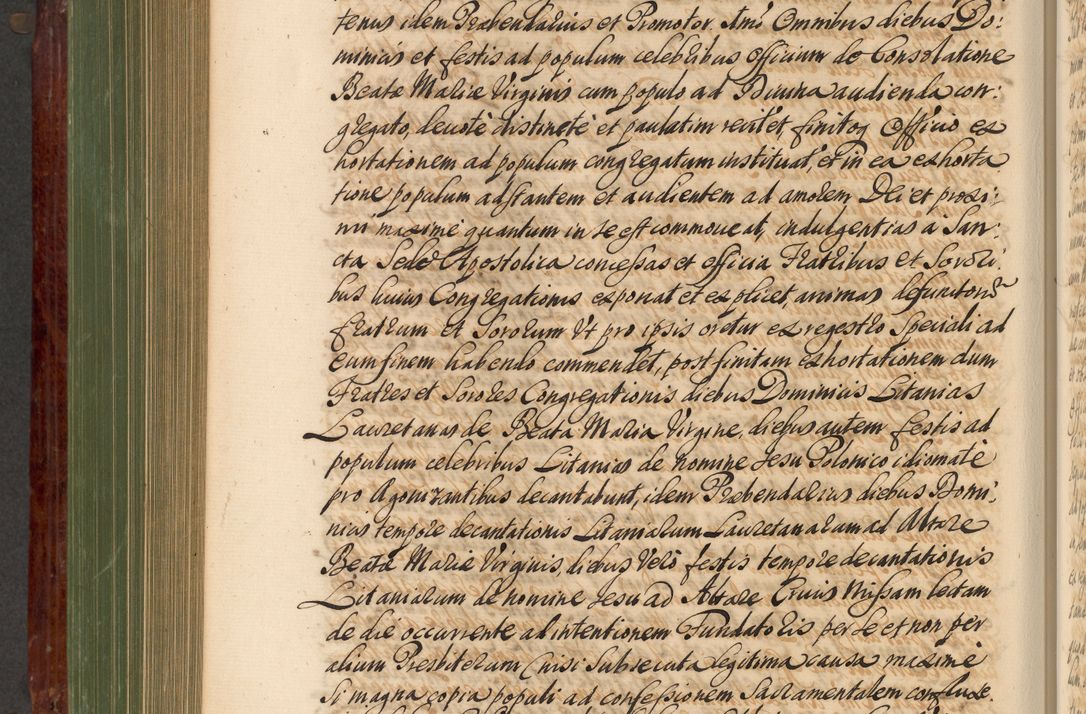 tenus idem Præbendarius et Promotor. Omnibus diebus Do:
minicis et festis ad populum celebribus officium de Consolatione
Beatæ Mariæ Virginis cum populo ad Divina audienda con:
gregato, devotè distinctè et paulatim recitet, finitoq officio ex
hortationem ad populum congregatum instituat, et in ea exhorta
tione populum adstantem et audientem ad amorem Dei et proxi:
mi maximè quantum in se est commoveat, indulgentias à San:
cta Sede Apostolica concessas et officia Fratribus et Sorori:
bus huius Congregationis exponat et explicet, animas defunctorū
fratrum et Sororum Vt pro ipsis oretur ex regestro Speciali ad
eum finem habendo commendet, post finitam exhortationem dum
Fratres et Sorores Congregationis diebus Dominicis Litanias
Lauretanas de Beata Maria Virgine, diebus autem festis ad
populum celebribus Litanias de nomine Jesu Polonico idiomate
pro Agonizantibus decantabunt, idem Præbendarius diebus Domi:
nicis tempore decantationis Litaniarum Lauretanarum ad Altare
Beatæ Mariæ Virginis, diebus Verò festis tempore decantationis
Litaniarum de nomine Jesu ad Altare Crucis Missam lectam
de die occurrente ad intentionem Fundatoris per se et non per
alium Presbiterum (nisi Subsecuta legitima causa maximè
Si magna copia populi ad confessionem Sacramentalem confluxe.